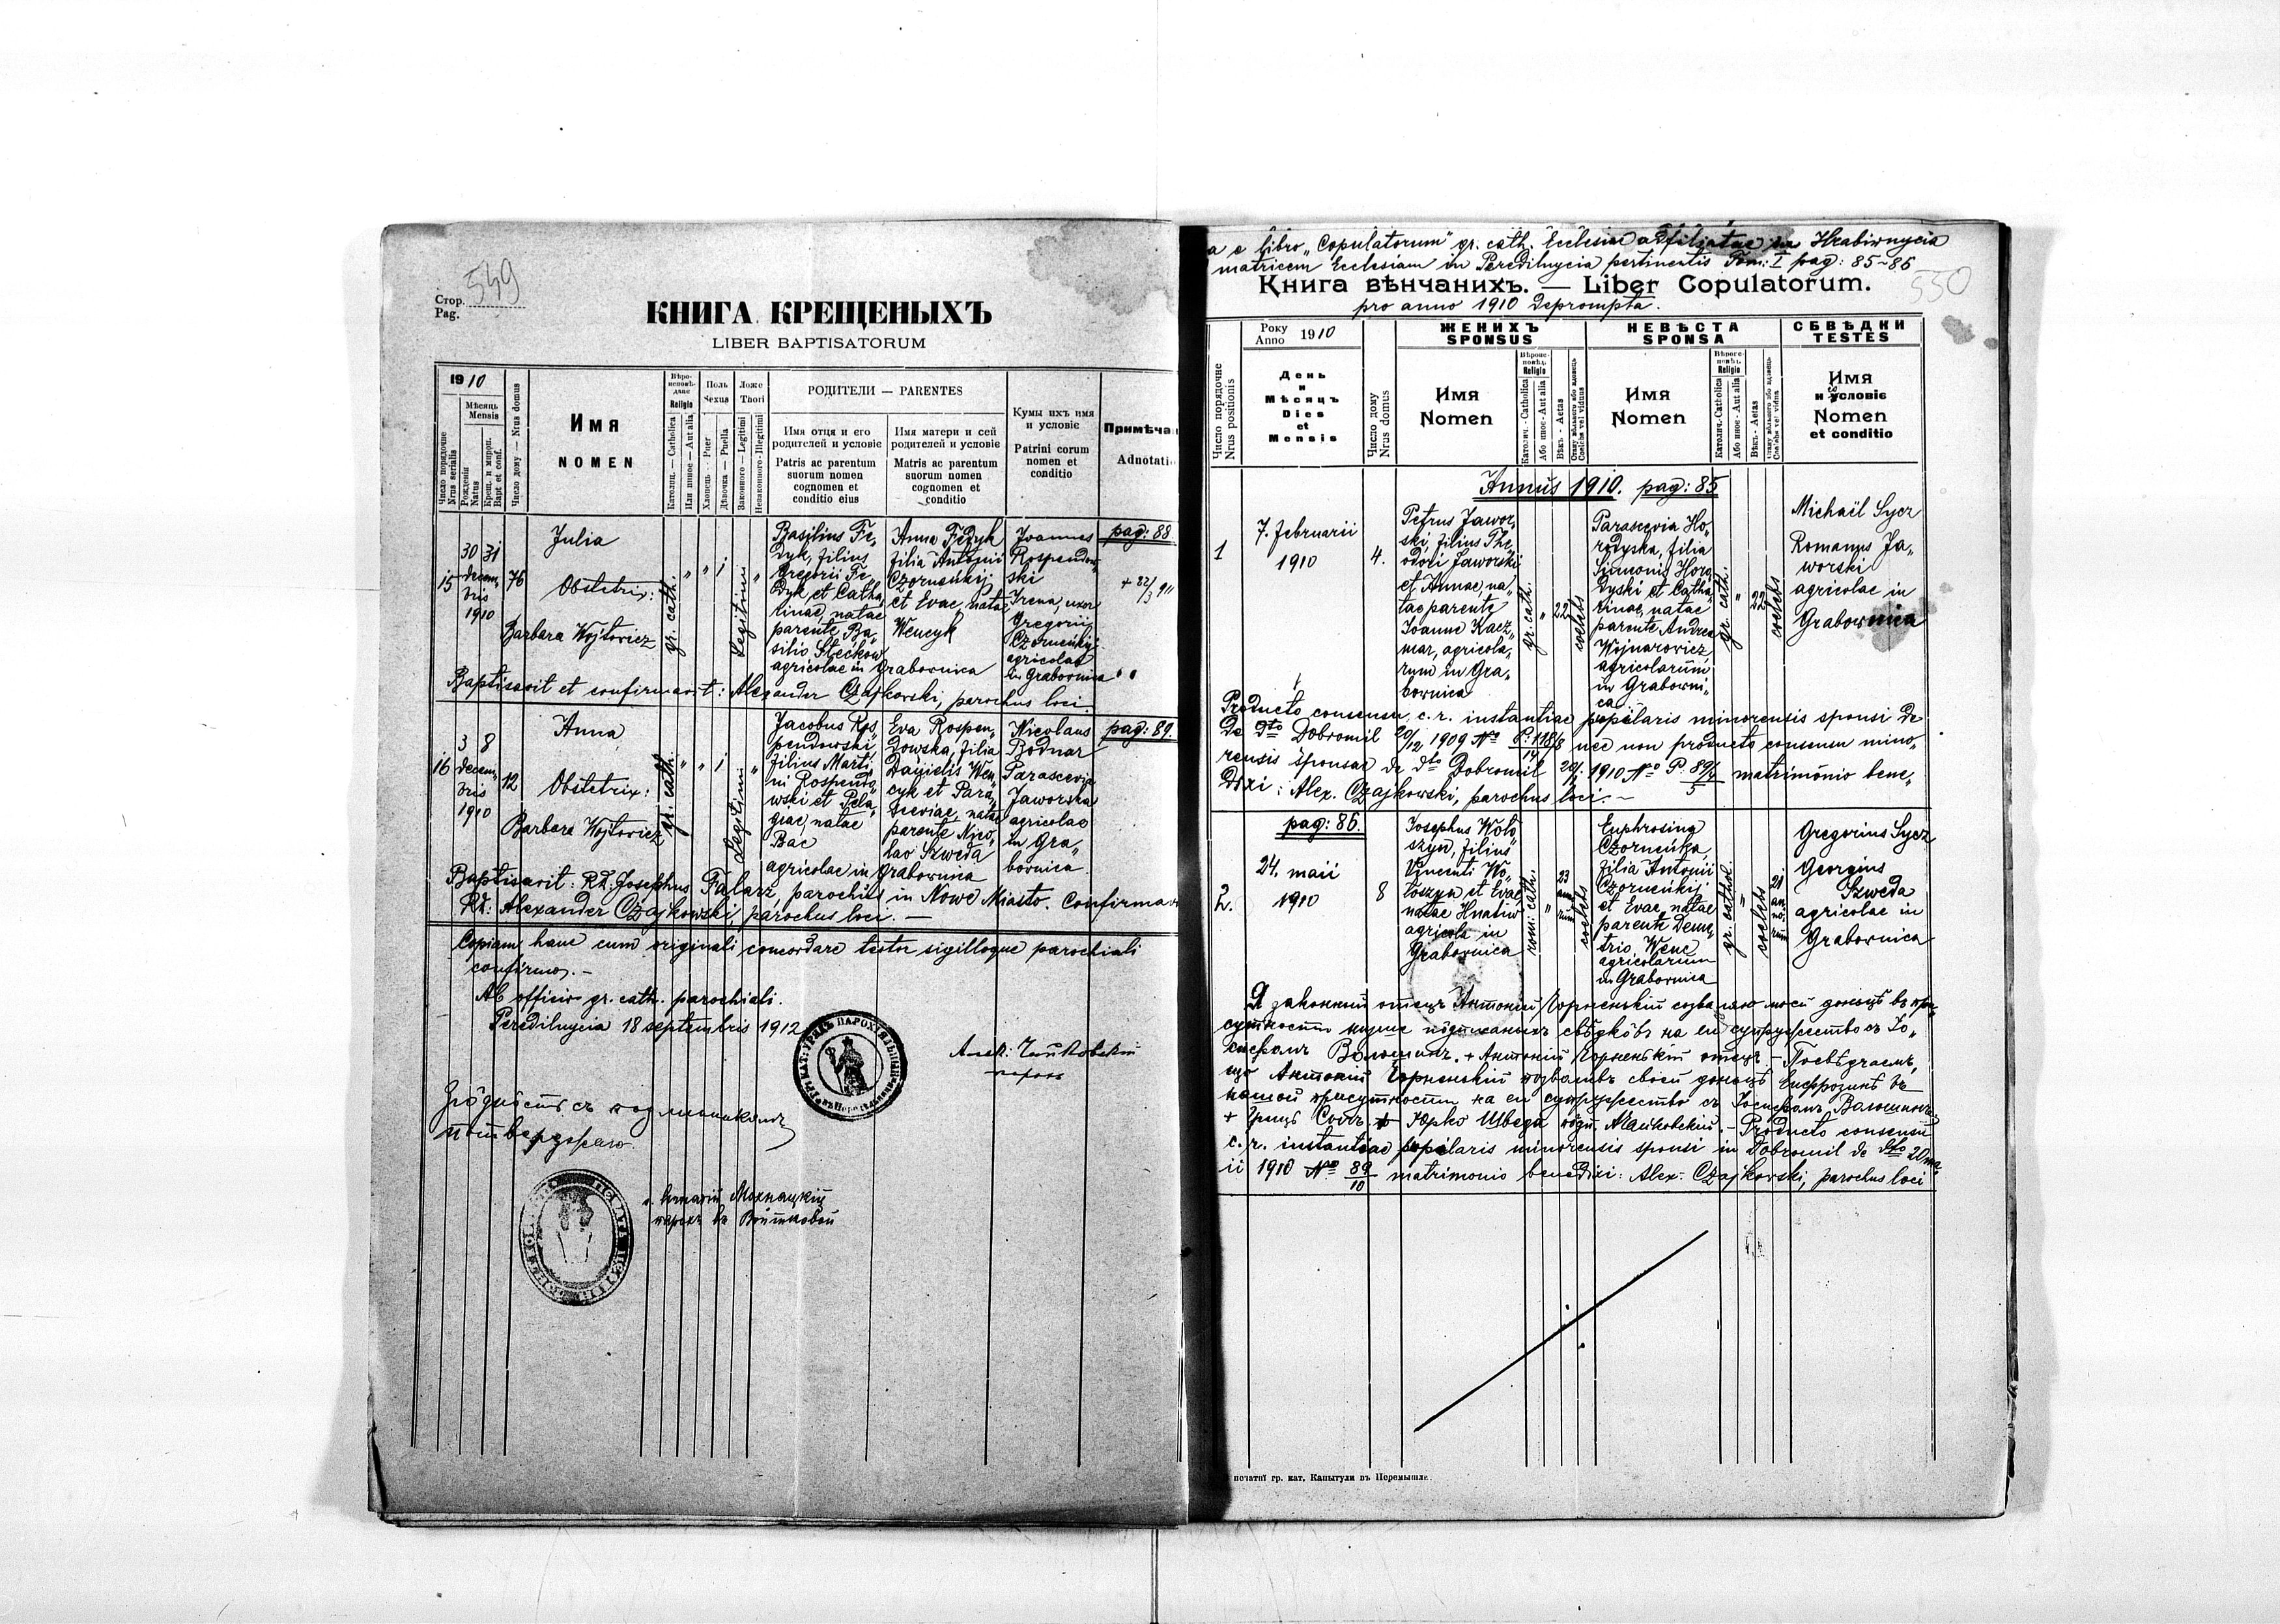 549
Стор.
Pag.
КНИГА КРЕЩЕНЫХЪ
LIBER BAPTISATORUM
1910
Мѣсяць
Mensis
Число порядочне
Nrus serialis
Рожденія
Natus
Крещ. и миропом.
Bapt et conf.
Число дому — Nrus domus
Имя
NOMEN
Вѣроисповѣданіе
Religio
Католиц. — Catholica
Или иное — Aut alia
Полъ
Sexus
Хлопець - Puer
Дѣвочка — Puella
Ложе
Thori
Законного — Legitimi
Незаконного - Illegitimi
РОДИТЕЛИ — PARENTES
Имя отця и его
родителей и условіе
Patris ac parentum
suorum nomen
cognomen et
conditio eius
Имя матери и сей
родителей и условіе
Matris ac parentum
suorum nomen
cognomen et
conditio
Кумы ихъ имя
и условіе
Patrini eorum
nomen et
conditio
Примѣча
Adnotati
15
30 31
decem„
bris
1910
76
Julia
Obstetrix:
Barbara Wojtowicz
gr. cath.
" " 1
Legitimi "
Basilius Fe„
dyk, filius
Gregorii Fe„
dyk et Catha„
rinae, natae
parente Ba„
silio Steckow
agricolae in Grabownica
Anna Fedyk
filia Antonii
Czorneńkij
et Evae, natae
Wencyk
Joannes
Rospendow„
ski
Irena, uxor
Gregorii
Czorneńkij
agricolae
in Grabownica
pag: 88
+ 22/3 911
Baptisavit et confirmavit: Alexander Czajkowski, parochus loci.
16
3 8
decem„
bris
1910
12
Anna
Obstetrix:
Barbara Wojtowicz
gr. cath.
" " 1
Legitimi "
Jacobus Ros„
pendowski
filius Marti„
ni Rospendo„
wski et Pela„
giae, natae
Bac
agricolae in Grabownica
Eva Rospen„
dowska, filia
Danielis Wen„
cyk et Para„
sceviae, natae
parente Nico„
lao Szweda
Nicolaus
Bodnar
Parascevia
Jaworska
agricolae
in Gra„
bownica
pag: 89.
Baptisavit: Rd: Josephus Falarz, parochus in Nowe Miasto. Confirmav
Rd: Alexander Czajkowski parochus loci. —
Copiam hanc cum originali concordare testor sigilloque parochiali
confirmo. —
Ab officio gr. cath. parochiali.
Peredilnycia 18 septembris 1912
Алек: Чайковскій
парох
Згôдность съ подлинникомъ
потверджаю
Мохнацкій
парохъ въ Войтковой
a e libro „Copulatorum" gr. cath. Ecclesiae affiliatae in Hrabiwnycia
matricem Ecclesiam in Peredilnycia pertinentis Tom: I pag: 85-86
Книга вѣнчаних. — Liber Copulatorum.
550
pro anno 1910 deprompta.
Число порядочне
Nrus positionis
Року
Anno 1910
День
и
Мѣсяць
Dies
et
Mensis
Число дому
Nrus domus
ЖЕНИХЪ
SPONSUS
Имя
Nomen
Религіо
Religio
Католич. - Catholica
Або иное - Aut alia
Вѣкъ. - Aetas
НЕВѢСТА
SPONSA
Имя
Nomen
Religio
Католич. - Catholica
Або иное - Aut alia
Вѣкъ - Aetas
СВѢДКИ
TESTES
Имя
и условіе
Nomen
et conditio
Annus 1910. pag: 85
1
7. februarii
1910
4.
Petrus Jawor„
ski, filius The„
odori Jaworski
et Annae, na„
tae parente
Joanne Kacz„
mar, agricola„
rum in Gra„
bownica
gr. cath.
"
22
coelebs
Parascevia Ho„
rodyska, filia
Simeonis Horo„
dyski et Catha„
rinae, natae
parente Andrea
Wojnarowicz
agricolarum
in Grabowni„
ca
gr. cath.
"
22
coelebs
Michaël Sycz
Romanus Ja„
worski
agricolae in
Grabownica
Producto consensu c. r. instantiae pupilaris minorensis sponsi de
de dto Dobromil 20/12 1909 No P. 118/14 8 nec non producto consensu mino„
rensis sponsae de dto Dobromil 20/1 1910 No P. 89/5 matrimonio bene„
dixi: Alex. Czajkowski, parochus loci. —
pag: 86.
2.
24. maii
1910
8
Josephus Woło„
szyn, filius
Vincenti Wo„
łoszyn et Evae
natae Hnatiw
agricola in
Grabownica
rom: cath.
"
23
anno„
rum
coelebs
Euphrosina
Czorneńka,
filia Antonii
Czorneńkij
et Evae, natae
parente Deme„
trio Wenc
agricolarum
in Grabownica
gr. cathol.
"
coelebs
21
an„
no„
rum
Gregorius Sycz
Georgius
Szweda
agricolae in
Grabownica
Я законный отецъ Антоній Чорненькій созваляю моей доньцѣ въ при„
сутности низше пôдписаныхъ свѣдкôвъ на еи супружество съ Іо„
сифомъ Волошинъ. + Антоній Чорненькій отецъ — Посвѣдчаемъ,
що Антоній Чорненькій позваливъ своей доньцѣ Евфрозинѣ въ
нашой присутности на еи супружество съ Іосифомъ Волошинъ
+ Грицъ Сычъ + Юрко Шведа пôдп. Чайковскій. — Producto consensu
c. r. instantiae pupilaris minorensis sponsi in Dobromil de dto 20 ma„
ii 1910 No 89/10 matrimonio benedixi: Alex. Czajkowski, parochus loci
печатнї гр. кат. Капитули въ Перемышле.